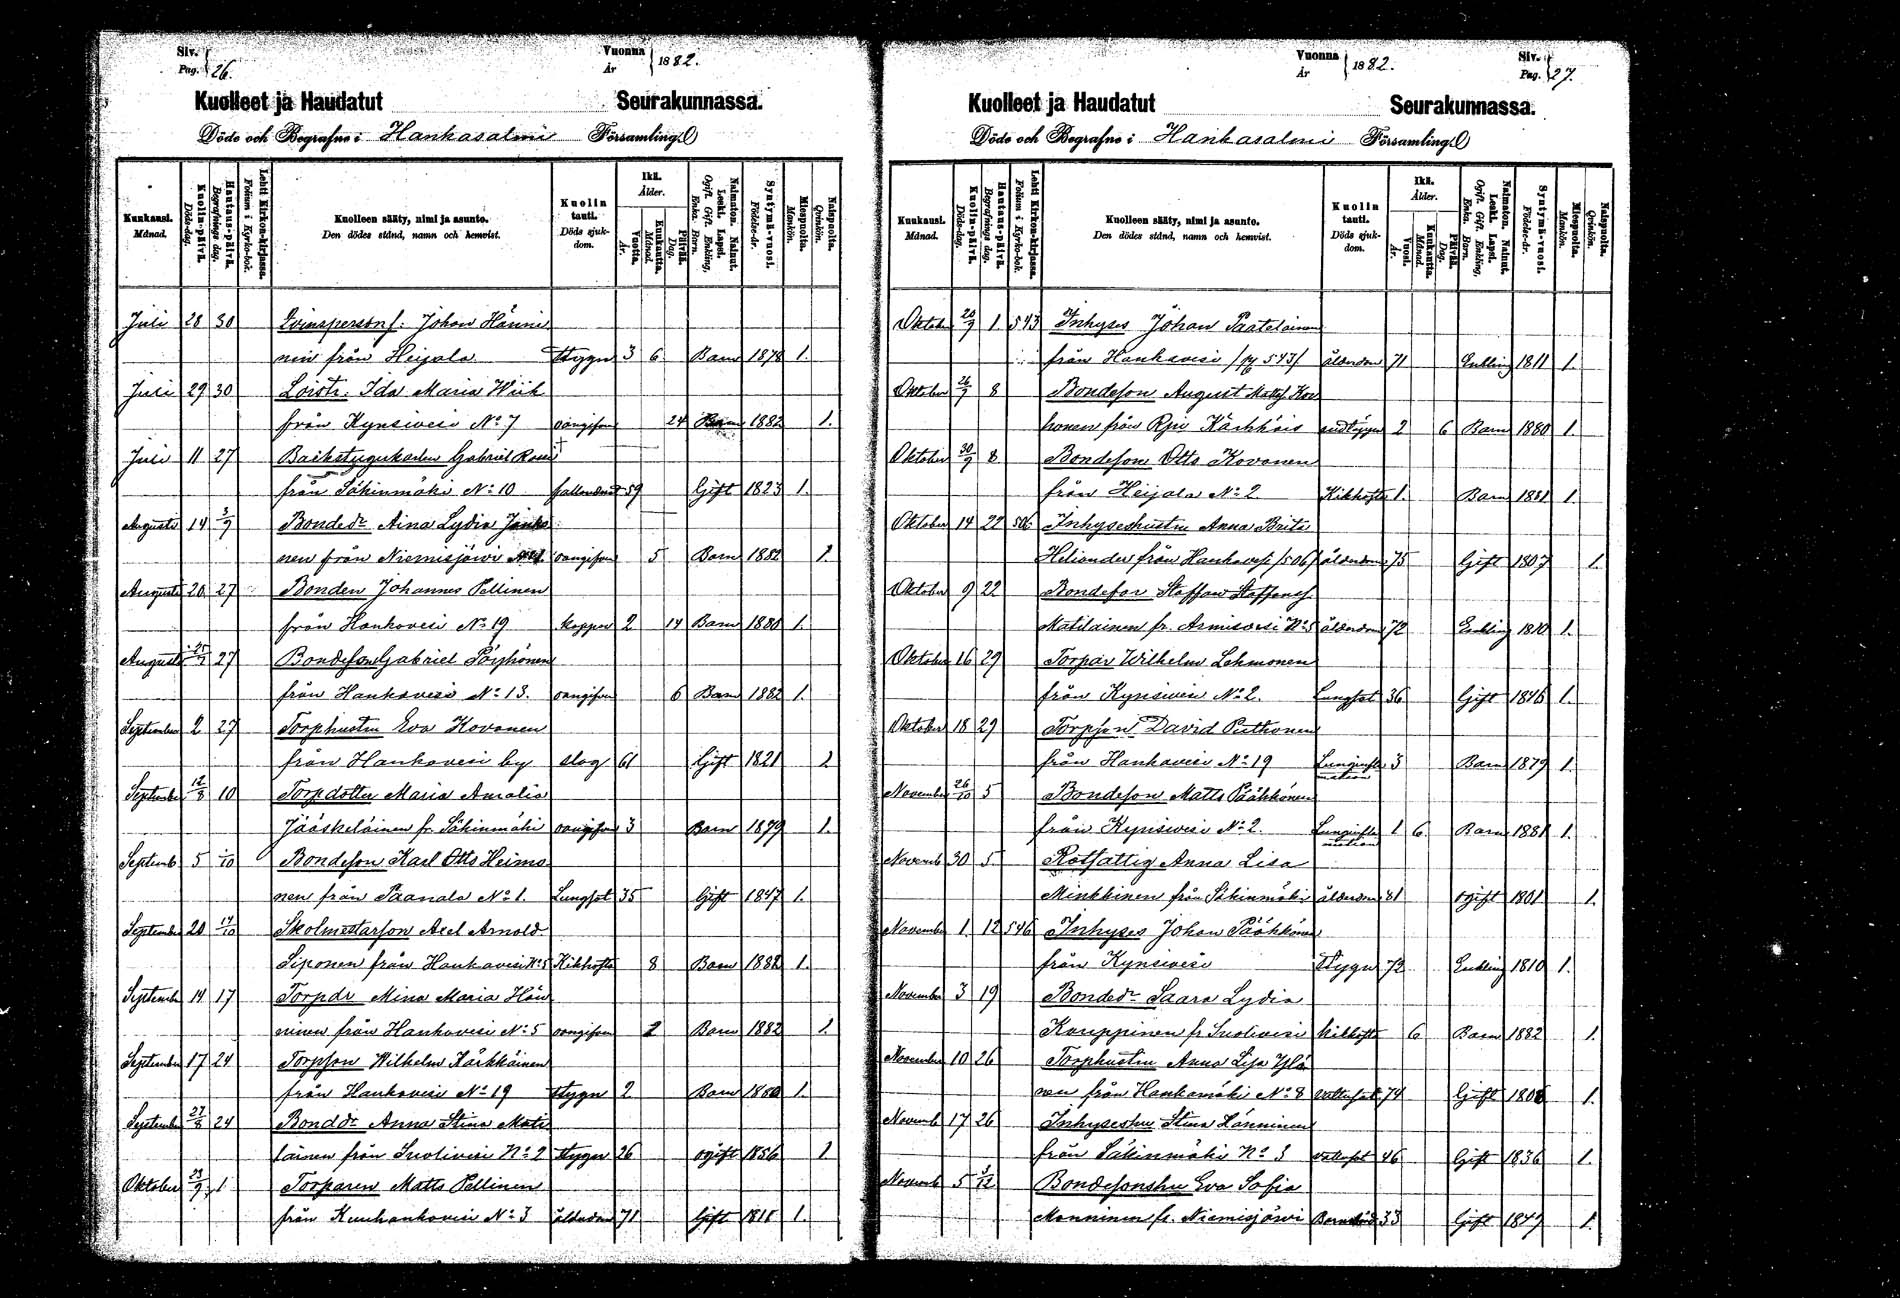 Siv.
Pag. 26.
Vuonna
År 1882.
Kuolleet ja Haudatut Seurakunnassa.
Döde och Begrafne i Hankasalmi Församling.
Kuukausi. Månad.
Kuolin-päivä. Döds-dag.
Hautaus-päivä. Begrafnings dag.
Lehti Kirkon-kirjassa. Folium i Kyrko-bok.
Kuolleen sääty, nimi ja asunto.
Den dödes stånd, namn och hemvist.
Kuolin tauti. Döds sjukdom.
Ikä. Ålder.
Vuotta. År.
Kuukautta. Månad.
Päivää. Dag.
Naimaton. Nainut. Leski. Lapsi. Ogift. Gift. Enkling. Enka. Barn.
Syntymä-vuosi. Födelse-år.
Miespuolta. Mankön.
Naispuolta. Qvinkön.
Juli 28 30 Johan Hänni
nen från Heijala 3 6 Barn 1878 1.
Juli 29 30 Ida Maria Wiik
från Kynsivesi No 7 24 Barn 1882 1.
Juli 11 27 Gabriel
från Säkinmäki No 10 59 Gift 1823 1.
Augusti 14 3/9 Bonded:r Aina Lydia
nen från Niemisjärvi 5 Barn 1882 1.
Augusti 20 27 Bonden Johannes Pellinen
från Hankavesi No 19 koppor 2 14 Barn 1880 1.
Augusti 27 Bondeson Gabriel Pöyhönen
från Hankavesi No 13. 6 Barn 1882 1.
September 2 27 Torphustru Eva Kovanen
från Hankavesi by slag 61 Gift 1821
September 12/8 10 Torpdotter Maria Amalia
Jääskeläinen fr. Säkinmäki 3 Barn 1879 1.
Septemb 5 1/10 Bondeson Karl Otto Heimo
nen från Paanala No 1. Lungsot 35 Gift 1847 1.
September 20 14/10 Skolmästarson Axel Arnold
Siponen från Hankavesi No 5 Kikhosta 8 Barn 1882 1.
September 14 17 Torpdr Mina Maria Hän
ninen från Hankavesi No 5 2 Barn 1882 1.
September 17 24 Torpson Wilhelm Kärkkäinen
från Hankavesi No 19 2 Barn 1880 1.
September 27/8 24 Bondd:r Anna Stina Mati
lainen från Suolivesi No 2 26 ogift 1856 1
Oktober 23/9 1 Torparen Matts Pellinen
från No 3 ålderdom 71 Gift 1811 1.
Vuonna
År 1882.
Siv.
Pag. 27.
Kuolleet ja Haudatut Seurakunnassa.
Döde och Begrafne i Hankasalmi Församling.
Kuukausi. Månad.
Kuolin-päivä. Döds-dag.
Hautaus-päivä. Begrafnings dag.
Lehti Kirkon-kirjassa. Folium i Kyrko-bok.
Kuolleen sääty, nimi ja asunto.
Den dödes stånd, namn och hemvist.
Kuolin tauti. Döds sjukdom.
Ikä. Ålder.
Vuosi. År.
Kuukautta. Månad.
Päivää. Dag.
Naimaton. Nainut. Leski. Lapsi. Ogift. Gift. Enkling. Enka. Barn.
Syntymä-vuosi. Födelse-år.
Miespuolta. Mankön.
Naispuolta. Qvinkön.
Oktober 20/9 1 543 Inhyses Johan Paatelainen
från Hankavesi /pg 543/ ålderdom 71 Enkling 1811 1.
Oktober 26/9 8 Bondeson August Matts. Kov
honen från 2 6 Barn 1880 1.
Oktober 30/9 8 Bondeson Otto Kovanen
från Heijala No 2 Kikhosta 1. Barn 1881 1.
Oktober 14 22 506 Inhyseshustru Anna Brita
från Hankavesi /506/ ålderdom 75 Gift 1807 1.
Oktober 9 22 Staffan Staffansf
Matilainen fr. Armisvesi No 5 ålderdom 72 Enkling 1810 1.
Oktober 16 29 Torpar Wilhelm Lehmonen
från Kynsivesi No 2. Lungsot 36 Gift 1846 1.
Oktober 18 29 Torpson David Puttonen
från Hankavesi No 19 Lunginflamation 3 Barn 1879 1.
November 26/10 5 Bondeson Matts Pääkkönen
från Kynsivesi No 2. Lunginflamation 1 6 Barn 1881 1.
Novemb 30 5 Rotfattig Anna Lisa
Minkkinen från Säkinmäki ålderdom 81 ogift 1801 1.
November 1. 12 546 Inhyses Johan Pääkkönen
från Kynsivesi 72 Enkling 1810 1.
November 3 19 Bonded:r Saara Lydia
Kauppinen fr Suolivesi kikhosta 6 Barn 1882 1.
November 10 26 Torphustru Anna Lisa Ylä
nen från Hankamäki No 8 vattusot 74 Gift 1808 1.
Novemb 17 26 Inhyseshu Stina Hänninen
från Säkinmäki No 3 vattusot 46 Gift 1836 1.
Novemb 5 3/12 Bondesonshu Eva Sofia
Manninen fr. Niemisjärvi 33 Gift 1849 1.